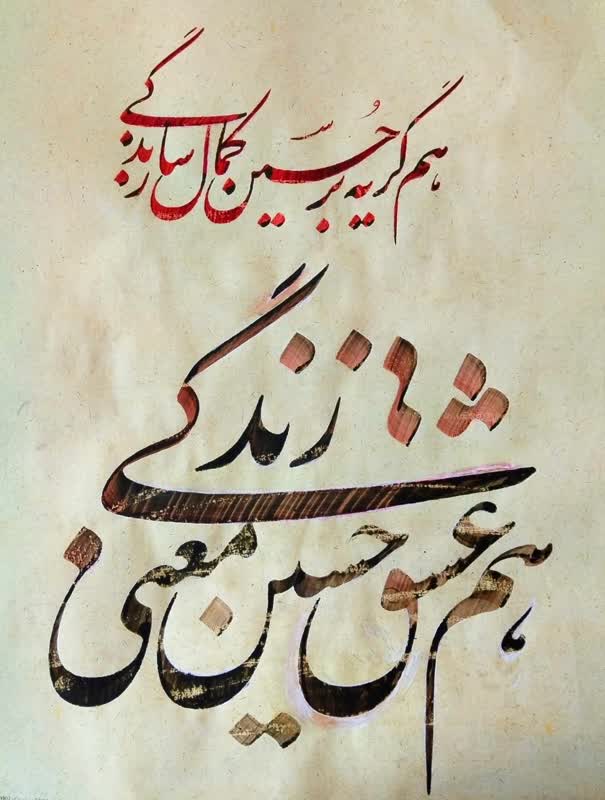 هم گریه بر حسین کمال سازندگی
هم عشق حسین معنی زندگی